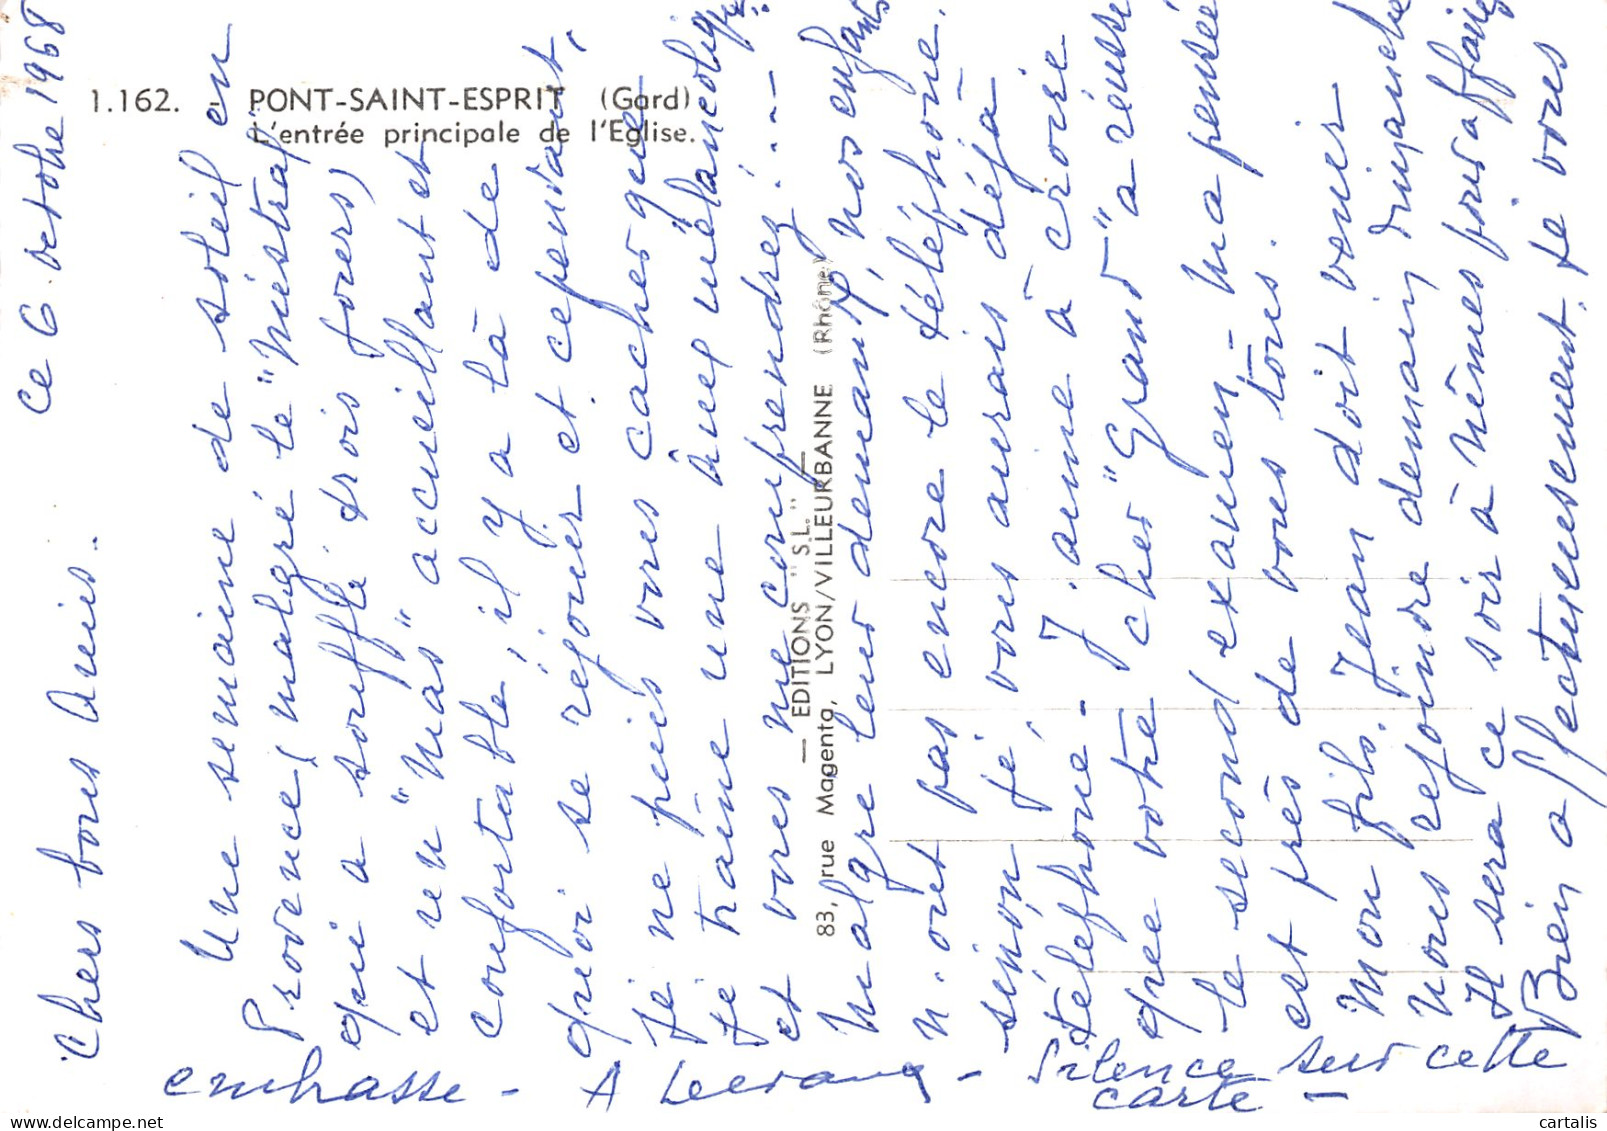 1.162. - PONT-SAINT-ESPRIT (Gard)
L'entrée principale de l'Eglise.
— EDITIONS "S.L." —
83, rue Magenta, LYON/VILLEURBANNE (Rhône)
Ce 6 octobre 1968
Chers bons Amis.
Une semaine de soleil en
Provence, (malgré le "Mistral"
qui a soufflé trois jours)
et un "Mas" accueillant et
confortable, il y a là de
quoi se réjouir et cependant,
je ne puis vous cacher que
je traîne une âme mélancolique..
et vous me comprendrez!...
Malgré leur demande, nos enfants
n'ont pas encore le téléphone.
sinon, je vous aurais déjà
téléphoné - J'aime à croire
que votre cher "Grand" a réussi
le second examen - Ma pensée
est près de vous tous.
Mon fils Jean doit venir
nous rejoindre demain dimanche
Il sera ce soir à Nîmes pour affaires
Bien affectueusement, je vous
embrasse - A - Silence sur cette
carte -
cartalis